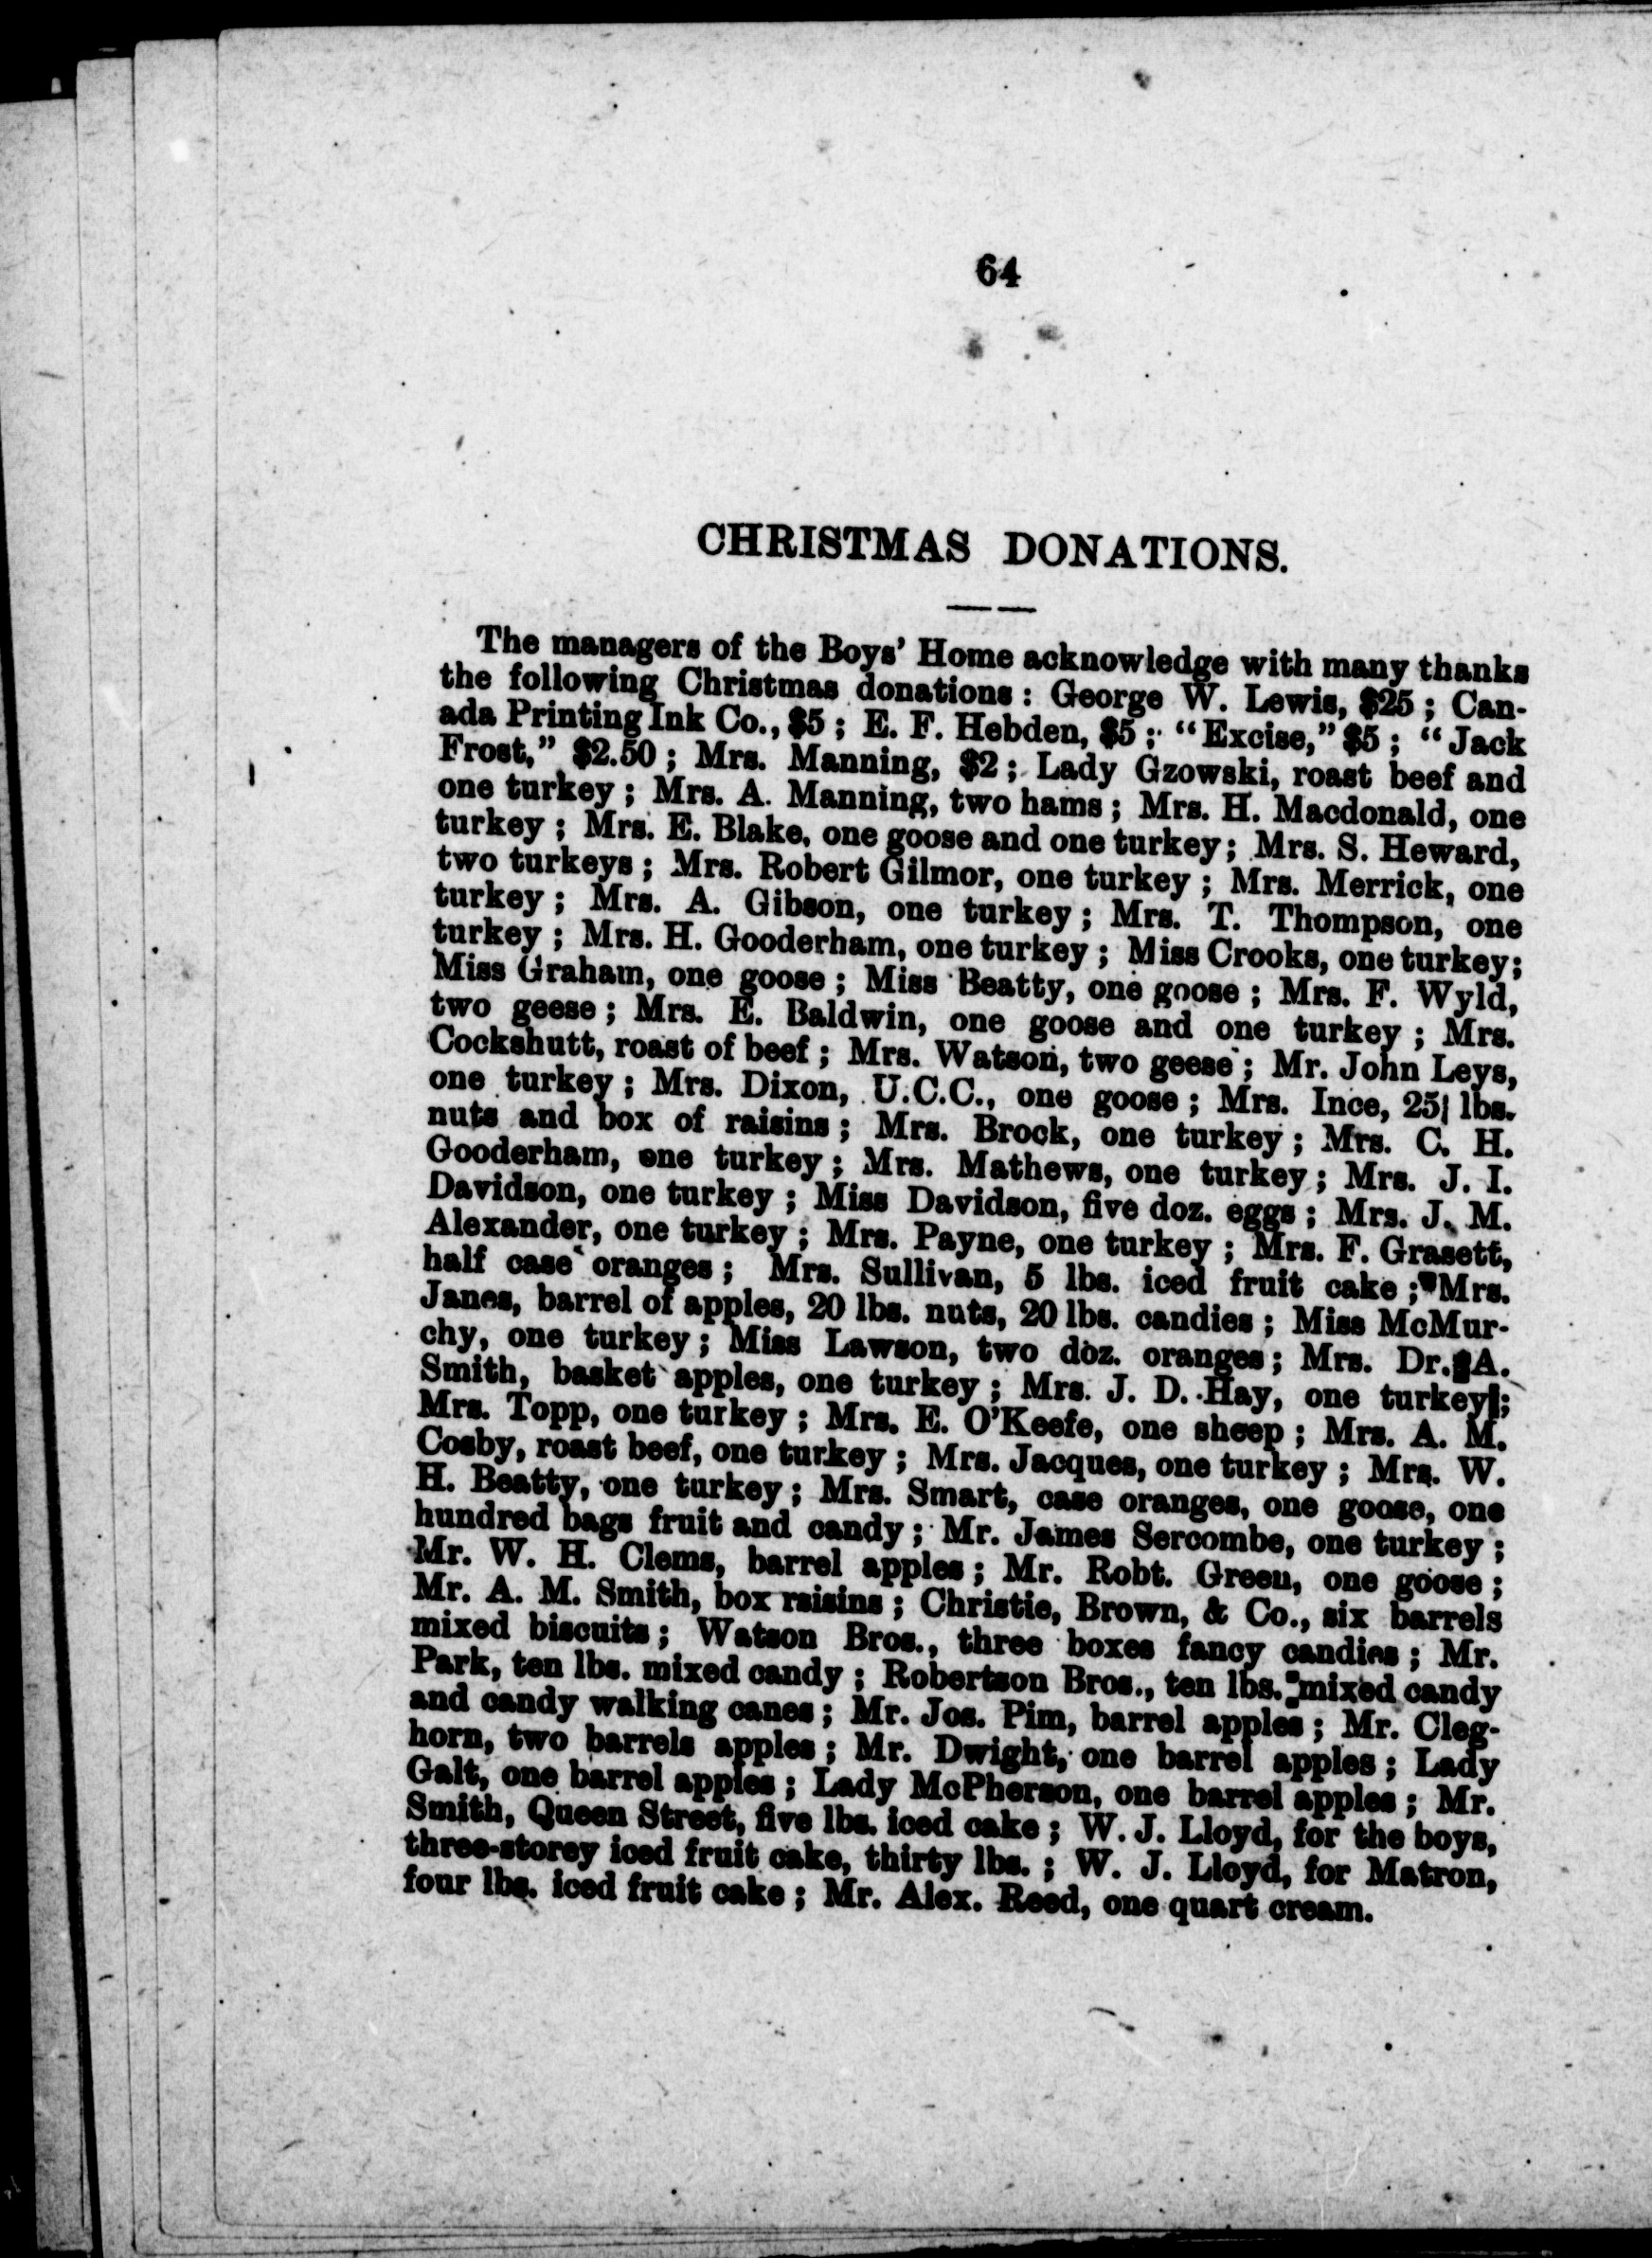 64
CHRISTMAS DONATIONS.
The managers of the Boys' Home acknowledge with many thanks
the following Christmas donations : George W. Lewis, $25 ; Can-
ada Printing Ink Co., $5 ; E. F. Hebden, $5 ; "Excise," $5 ; "Jack
Frost," $2.50 ; Mrs. Manning, $2 ; Lady Gzowski, roast beef and
one turkey ; Mrs. A. Manning, two hams ; Mrs. H. Macdonald, one
turkey ; Mrs. E. Blake, one goose and one turkey ; Mrs. S. Heward,
two turkeys ; Mrs. Robert Gilmor, one turkey ; Mrs. Merrick, one
turkey ; Mrs. A. Gibson, one turkey ; Mrs. T. Thompson, one
turkey ; Mrs. H. Gooderham, one turkey ; Miss Crooks, one turkey ;
Miss Graham, one goose ; Miss Beatty, one goose ; Mrs. F. Wyld,
two geese ; Mrs. E. Baldwin, one goose and one turkey ; Mrs.
Cockshutt, roast of beef ; Mrs. Watson, two geese ; Mr. John Leys,
one turkey ; Mrs. Dixon, U.C.C., one goose ; Mrs. Ince, 25 lbs.
nuts and box of raisins ; Mrs. Brock, one turkey ; Mrs. C. H.
Gooderham, one turkey ; Mrs. Mathews, one turkey ; Mrs. J. I.
Davidson, one turkey ; Miss Davidson, five doz. eggs ; Mrs. J. M.
Alexander, one turkey ; Mrs. Payne, one turkey ; Mrs. F. Grasett,
half case oranges ; Mrs. Sullivan, 5 lbs. iced fruit cake ; Mrs.
Janes, barrel of apples, 20 lbs. nuts, 20 lbs. candies ; Miss McMur-
chy, one turkey ; Miss Lawson, two doz. oranges ; Mrs. Dr. A.
Smith, basket apples, one turkey ; Mrs. J. D. Hay, one turkey ;
Mrs. Topp, one turkey ; Mrs. E. O'Keefe, one sheep ; Mrs. A. M.
Cosby, roast beef, one turkey ; Mrs. Jacques, one turkey ; Mrs. W.
H. Beatty, one turkey ; Mrs. Smart, case oranges, one goose, one
hundred bags fruit and candy ; Mr. James Sercombe, one turkey ;
Mr. W. H. Clems, barrel apples ; Mr. Robt. Green, one goose ;
Mr. A. M. Smith, box raisins ; Christie, Brown, & Co., six barrels
mixed biscuits ; Watson Bros., three boxes fancy candies ; Mr.
Park, ten lbs. mixed candy ; Robertson Bros., ten lbs. mixed candy
and candy walking canes ; Mr. Jos. Pim, barrel apples ; Mr. Cleg-
horn, two barrels apples ; Mr. Dwight, one barrel apples ; Lady
Galt, one barrel apples ; Lady McPherson, one barrel apples ; Mr.
Smith, Queen Street, five lbs. iced cake ; W. J. Lloyd, for the boys,
three-storey iced fruit cake, thirty lbs. ; W. J. Lloyd, for Matron,
four lbs. iced fruit cake ; Mr. Alex. Reed, one quart cream.